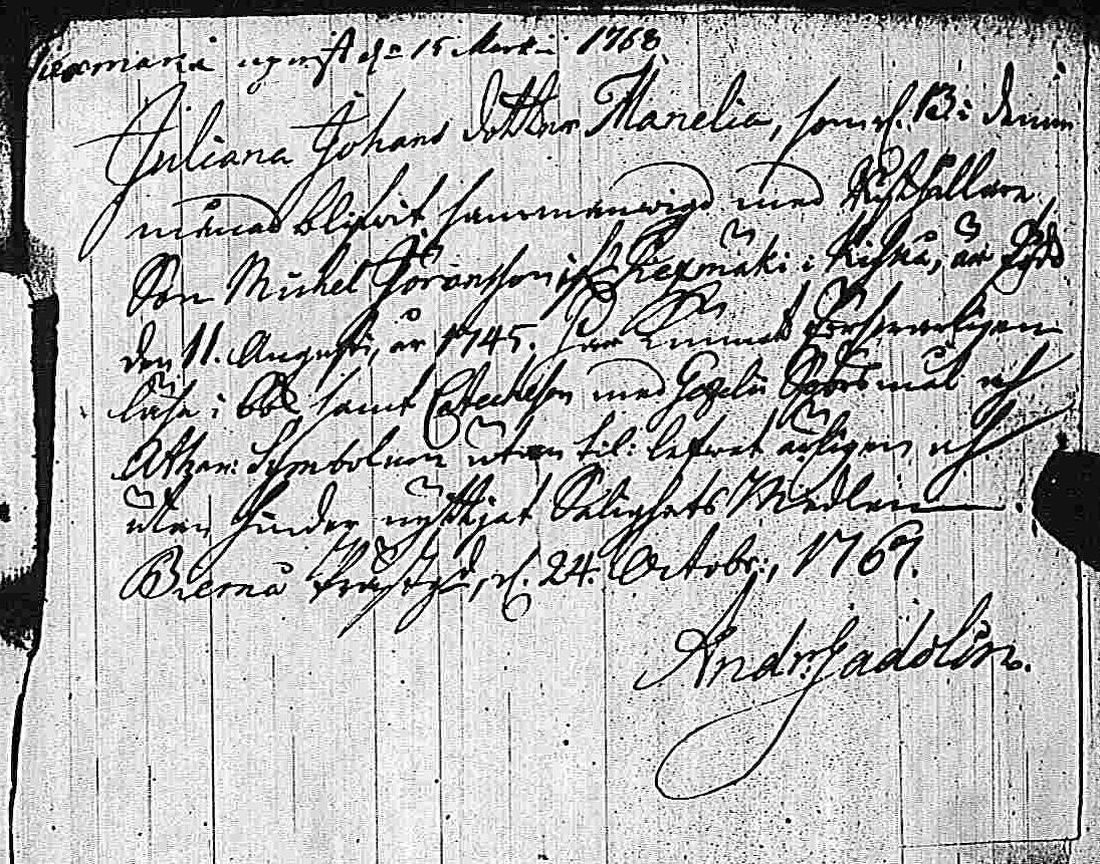 upvist d. 15 Martii 1768
Juliana Johans dotter Manelia, som d. 13. i denna
månad blifvit sammanvigd med Rusthållare
Son Michel Jöransson ifr. i Kisko, är född
den 11. Augusti, år 1745. har kunnat försvarligen
läsa i bok, samt Catechesen med Gezelii Spörsmål och
Athan: Symbolum utan til: lefvat ärligen och
utan hinder nyttjat Salighets Medlen.
Bierno Prästgd, d. 24. Octobr:, 1767.
Andr: Gadolin.